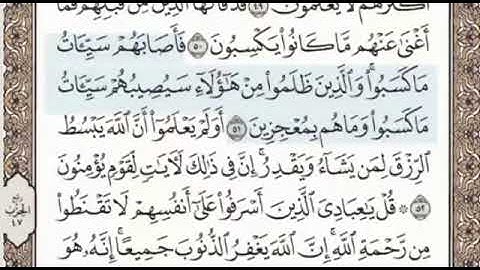 أَكْثَرَهُمْ لَا يَعْلَمُونَ ۝٤٩ قَدْ قَالَهَا الَّذِينَ مِن قَبْلِهِمْ فَمَا
أَغْنَىٰ عَنْهُم مَّا كَانُوا۟ يَكْسِبُونَ ۝٥٠ فَأَصَابَهُمْ سَيِّـَٔاتُ
مَا كَسَبُوا۟ ۚ وَالَّذِينَ ظَلَمُوا۟ مِنْ هَـٰٓؤُلَآءِ سَيُصِيبُهُمْ سَيِّـَٔاتُ
مَا كَسَبُوا۟ وَمَا هُم بِمُعْجِزِينَ ۝٥١ أَوَلَمْ يَعْلَمُوٓا۟ أَنَّ اللَّهَ يَبْسُطُ
الرِّزْقَ لِمَن يَشَآءُ وَيَقْدِرُ ۚ إِنَّ فِى ذَٰلِكَ لَـَٔايَـٰتٍ لِّقَوْمٍ يُؤْمِنُونَ
۝٥٢ ۞ قُلْ يَـٰعِبَادِىَ الَّذِينَ أَسْرَفُوا۟ عَلَىٰٓ أَنفُسِهِمْ لَا تَقْنَطُوا۟
مِن رَّحْمَةِ اللَّهِ ۚ إِنَّ اللَّهَ يَغْفِرُ الذُّنُوبَ جَمِيعًا ۚ إِنَّهُۥ هُوَ
ربع
الحزب
٤٧